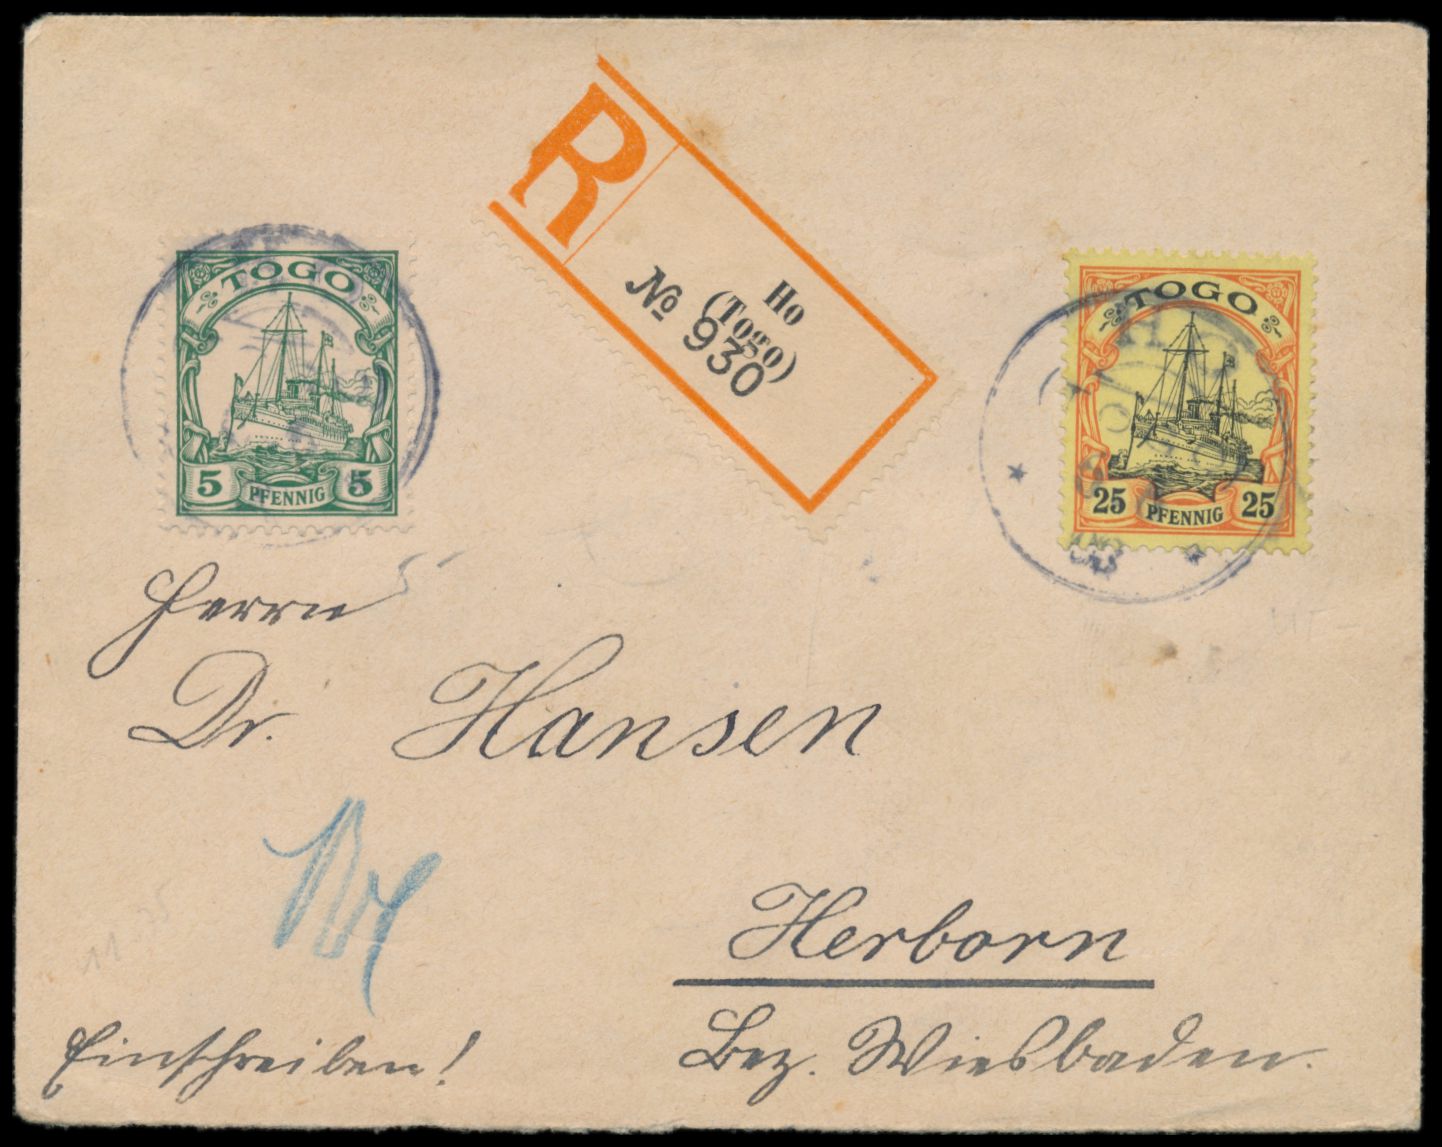 R
Ho
(Togo)
№ 930
TOGO
5 PFENNIG 5
TOGO
25 PFENNIG 25
Herrn
Dr. Hansen
Herborn
Bez. Wiesbaden.
Einschreiben!